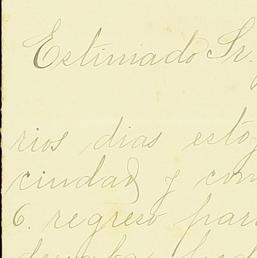 Estimado Sr.
rios dias estoy
ciudad y con
6. regreso para